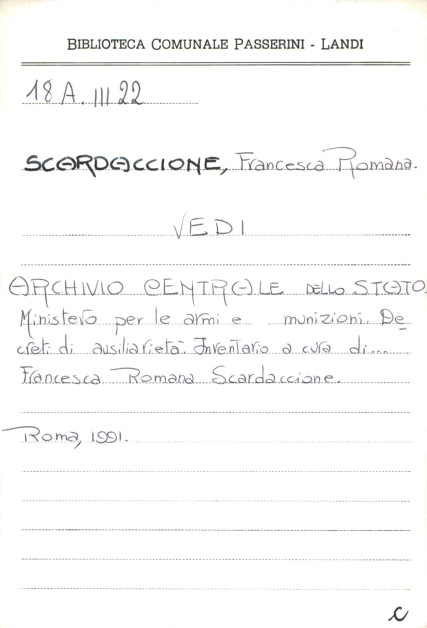 BIBLIOTECA COMUNALE PASSERINI - LANDI
18 A. III 22
SCARDACCIONE, Francesca Romana.
VEDI
ARCHIVIO CENTRALE DELLO STATO.
Ministero per le armi e munizioni. De
creti di ausiliarietà. Inventario a cura di...
Francesca Romana Scardaccione.
Roma, 1991.
C